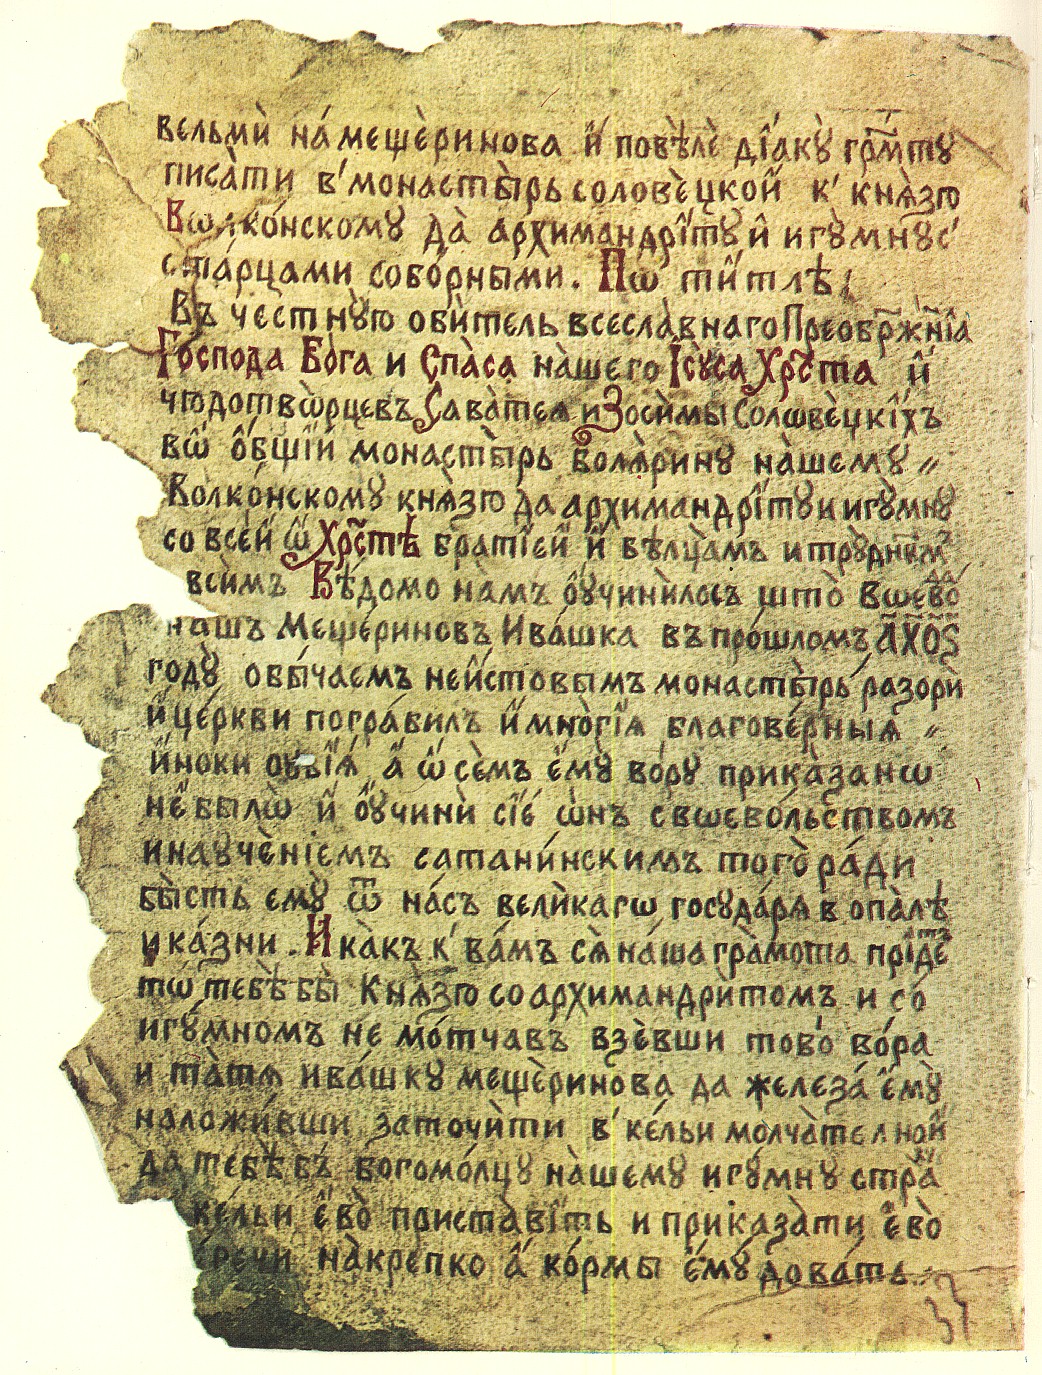 вельмѝ на́ мещѐринова и҆ повѣлѐ дїа́кꙋ̀ гра́мтꙋ
писа̀ти в' монасты̀рь соловѐцкой к' кнѧ̀зю
Вѡлко́нскомꙋ да̀ архимандрі́тꙋ и҆ игꙋ́мнꙋ с'
ста́рцами собо́рными. Пѡ ти́тлѣ
Въ честнꙋю оби̇̀тель всесла́внаго Преобржн҃їа
Господа Бога и Спа̀са на̀шего Ісꙋ̀са Хрⷭ҇та и҆
чюдотвѡ̀рцевъ Сава̀теѧ и Зоси́мы Солѡвѐцкіхъ
вѡ о҆́бщїи монасты̀рь болѧ̀ринꙋ на̀шемꙋ //
Волко́нскомꙋ кнѧ̀зю да архимандрі́тꙋ и игꙋ̀мнꙋ
со все́й ѡ҆ Хрⷭ҇тѣ̀ братїей и҆ бѣлца́мъ и трꙋднї́м
всѝмъ Вѣ́домо на́мъ ᲂу҆чини̇̀лось што̀ вшево̀да
нашъ Меще́риновъ Ива́шка въ про́шломъ а҂хоѕ
годꙋ̀ обы́чаемъ неи́стовымъ монасты̀рь разорѝ
и҆ це́ркви погра́вилъ и҆ мно̀гїѧ благове́рныѧ //
и҆́ноки ᲂуби́ѧ а҆ ѡ҆ се̇̀мъ є҆мꙋ во́рꙋ прика̀занѡ
не́ былѡ̀ и҆ ᲂу҆чинѝ сїе́ ѡ҆̀нъ свѡево́льством
и наꙋчѐнїемъ сатани́нскимъ того̀ ра́ди
бы̀сть емꙋ̀ ѿ на́съ вели́кагѡ госꙋда́рѧ в опа̀лѣ́
и ка́зни. И ка̀къ к' ва́мъ сѧ̀ на́ша гра̀мота прїде́тъ
тѡ тебѣ̀ бы̀ Кнѧ̀зю со архимандри̇̀томъ и со́
игꙋ́мномъ не мо́тчавъ взѐвши тово̀ во́ра
и та̀тѧ ива́шкꙋ мещѐринова да железа́ є҆мꙋ̀
наложи́вши заточи̇̀ти в' ке́льи молча́телной
да тебѣ̀ бъ богомо́лцꙋ на̀шемꙋ игꙋ́мнꙋ стра́жꙋ
ке́льи є҆во̀ приста̀віть и приказа̀ти є҆во̀
на̀крепко а҆ ко́рмы є҆мꙋ́ дова́ть.
37